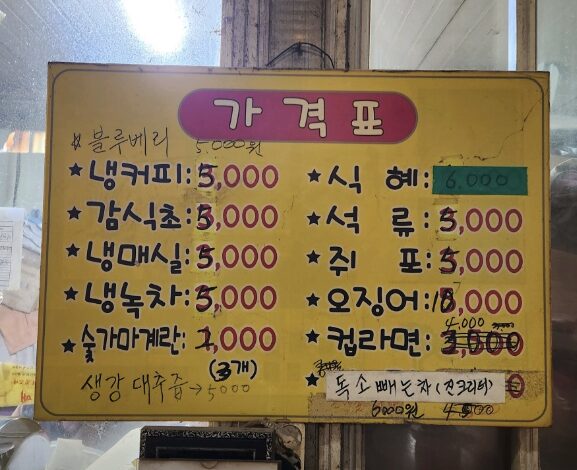 가격표
블루베리 5.000원
★냉커피: 5,000
★감식초: 5,000
★냉매실: 5,000
★냉녹차: 5,000
★숯가마계란: 1,000
(3개)
생강 대추즙→5000
★식 혜: 6.000
★석 류: 5,000
★쥐 포: 5,000
★오징어:
★컵라면: 4.000
★독소빼는차(진크리터)
6000원